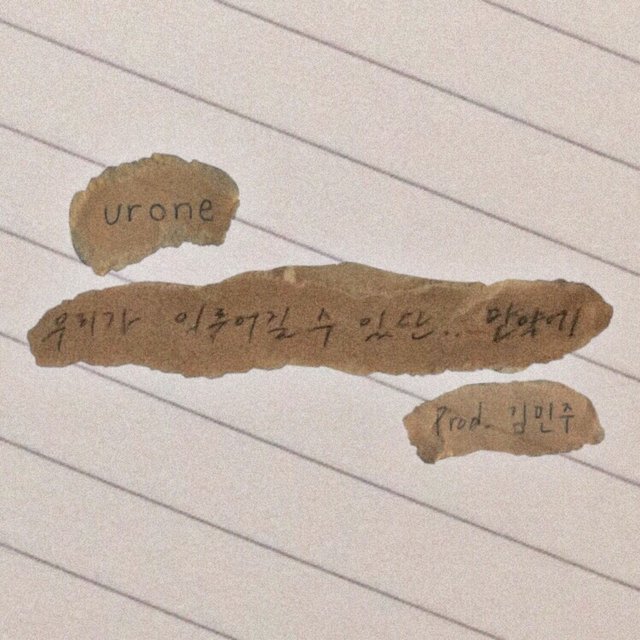 urone
우리가 이루어질 수 있단... 말야에
Prod. 김민주